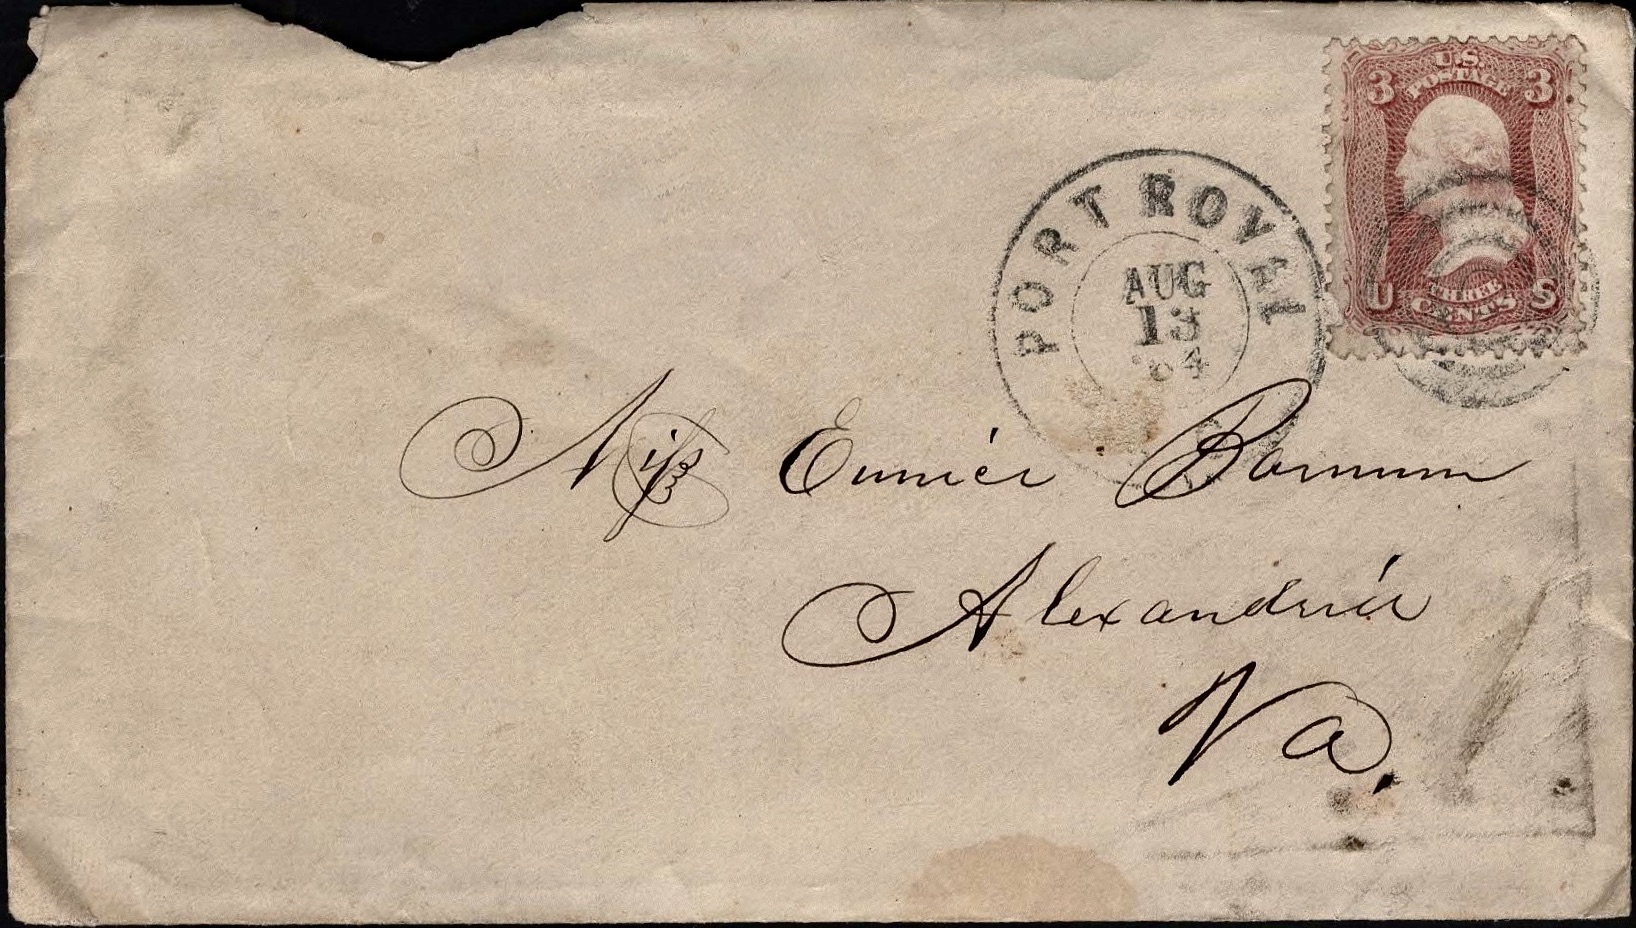 U.S.
POSTAGE
3 3
U THREE S
CENTS
PORT ROYAL
AUG
13
'64
Miss Eunice Barnum
Alexandria
Va.